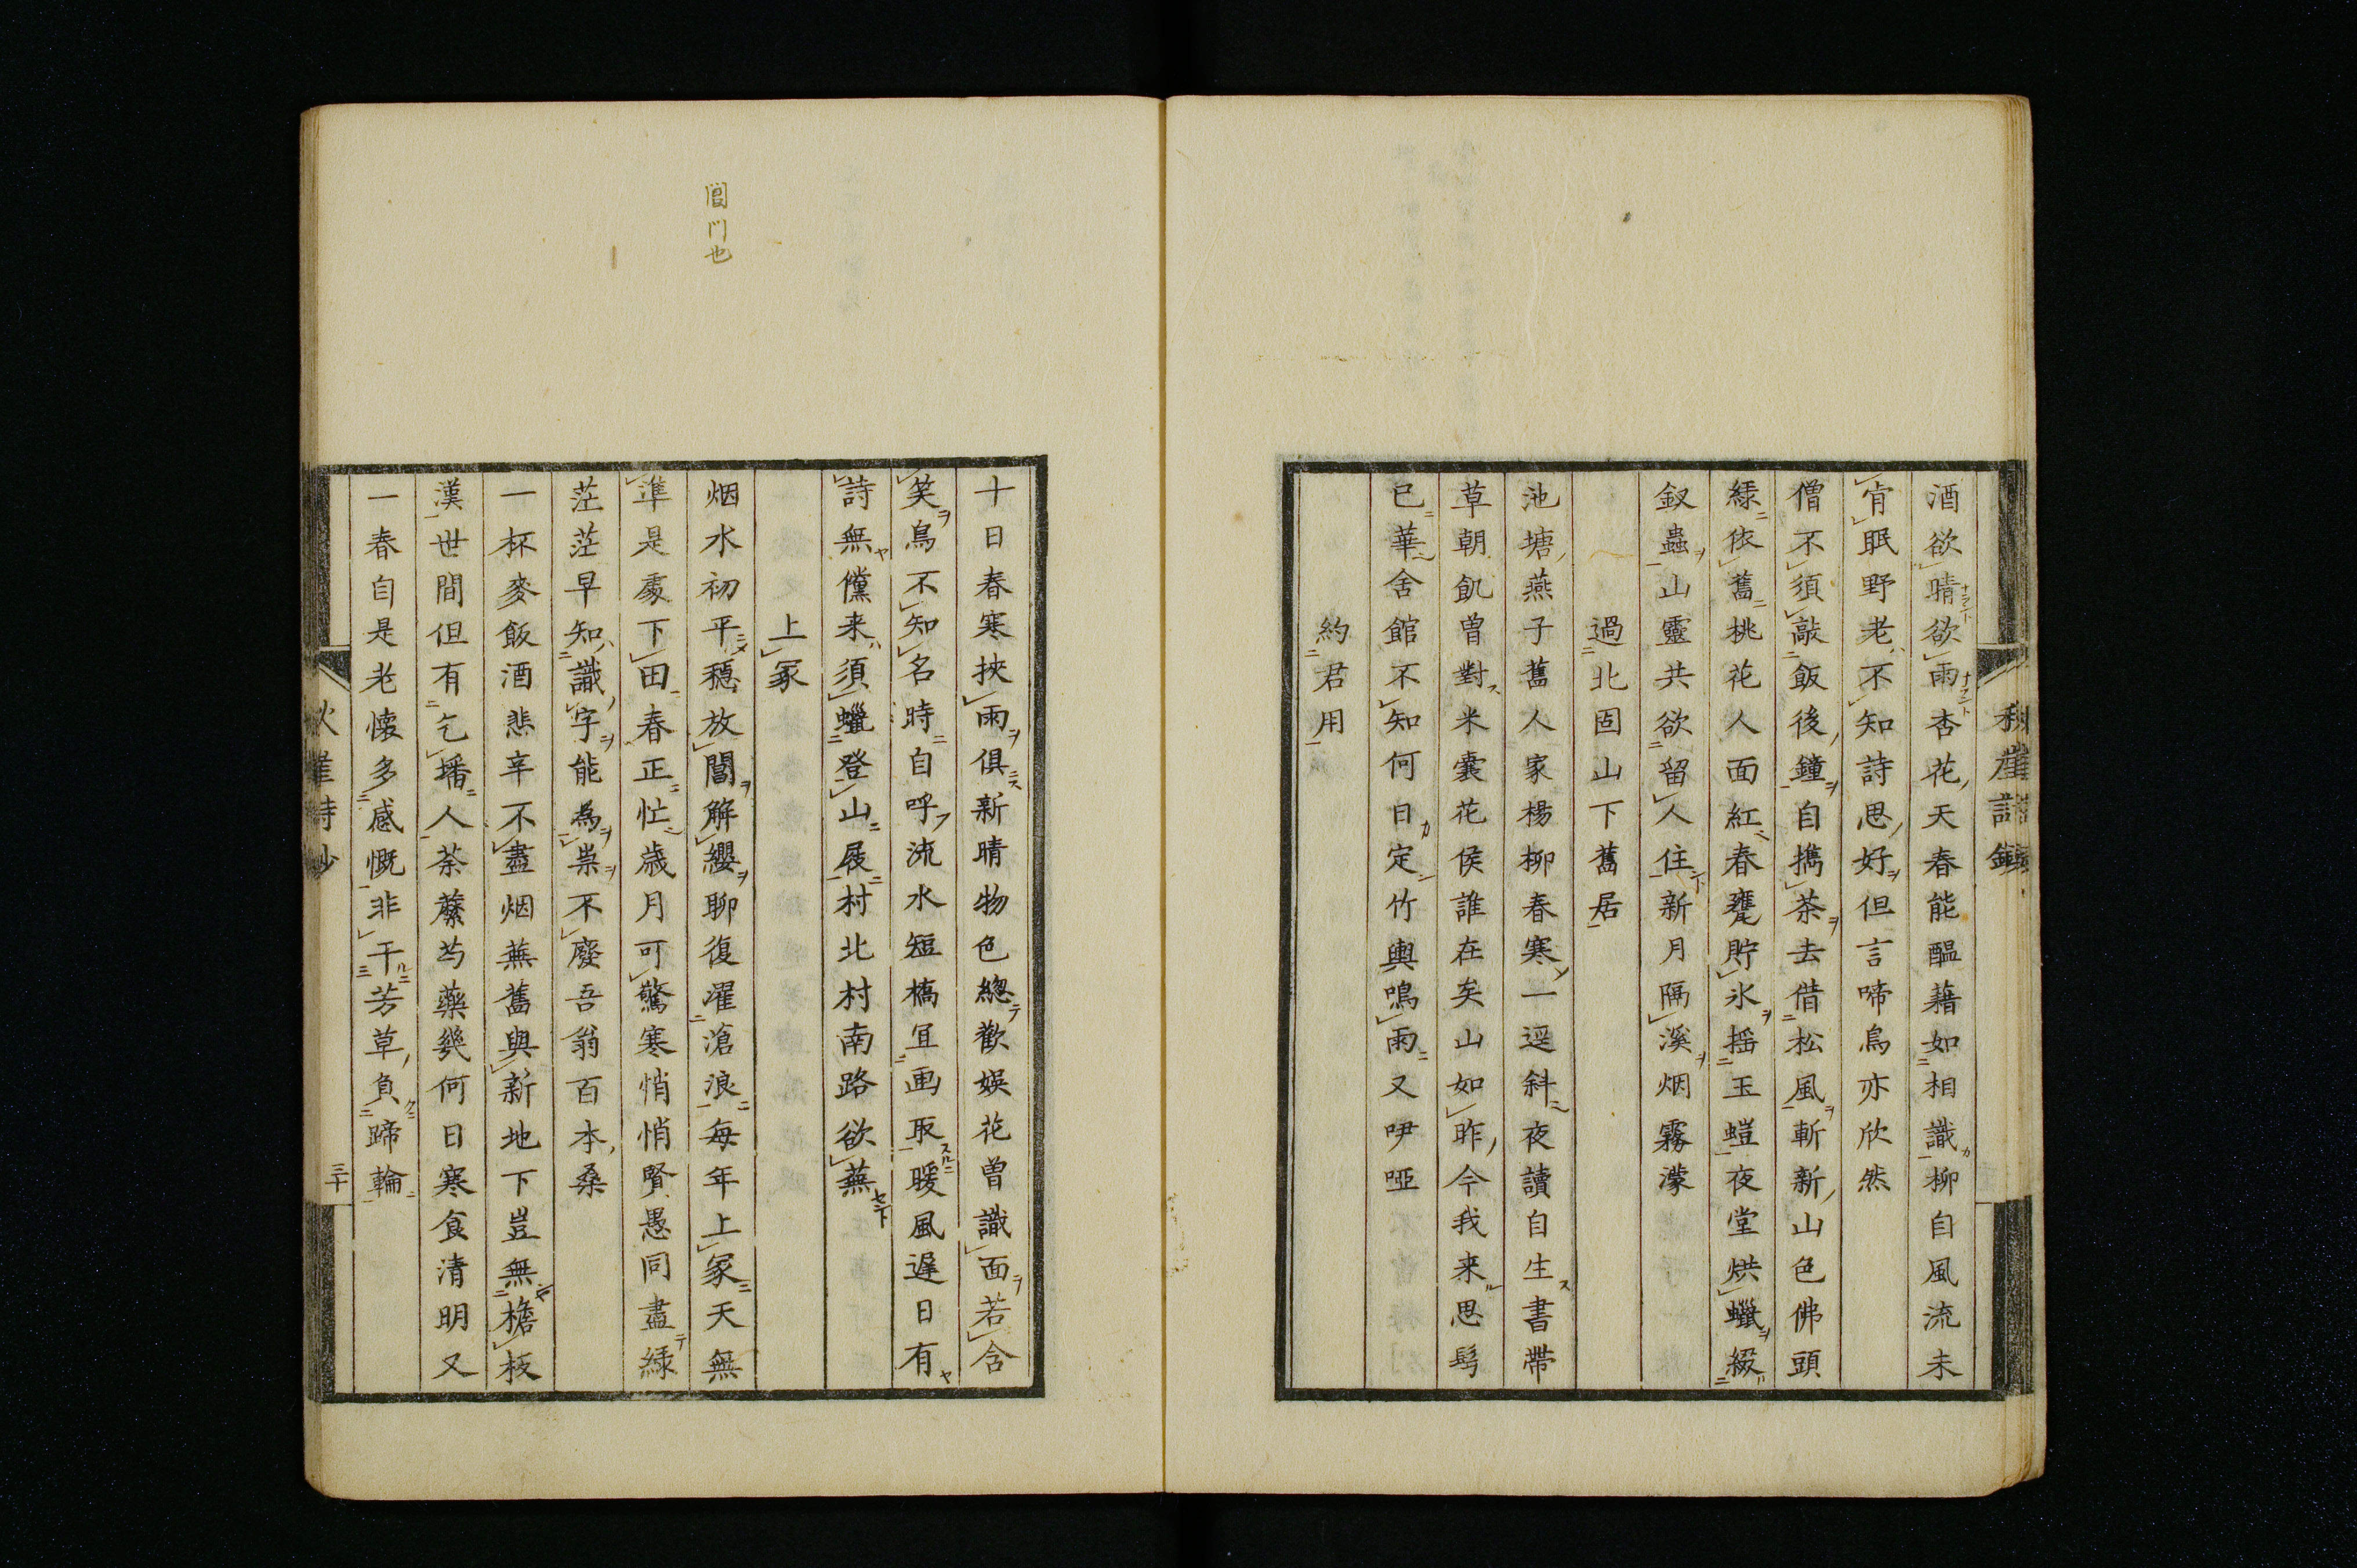 酒欲晴欲雨杏花天春能醞藉如相識柳自風流未
肯眠野老不知詩思好但言啼鳥亦欣然
僧不須敲飯後鐘自携茶去借松風斬新山色佛頭
緑依舊桃花人面紅春甕貯氷揺玉螘夜堂烘蠟綴
釵蟲山靈共欲留人住新月隔溪烟霧濛
過北固山下舊居
池塘燕子舊人家楊柳春寒一逕斜夜讀自生書帶
草朝飢曽對米嚢花侯誰在矣山如昨今我来思鬂
已華舍館不知何日定竹輿鳴雨又咿啞
約君用
十日春寒挾雨俱新晴物色緫歡娯花曽識面若含
笑鳥不知名時自呼流水短橋宜画取暖風遲日有
詩無儻来須蠟登山屐村北村南路欲蕪
上冢
烟水初平穏放閶解纓聊復濯滄浪毎年上冢天無
準是處下田春正忙歳月可驚寒悄悄賢愚同盡緑
茫茫早知識字能為祟不廢吾翁百本桑
一杯麥飯酒悲辛不盡烟蕪舊與新地下豈無檐板
漢世間但有乞墦人荼䕷芍藥幾何日寒食清明又
一春自是老懐多感慨非干芳草負蹄輪
三十
閶門也